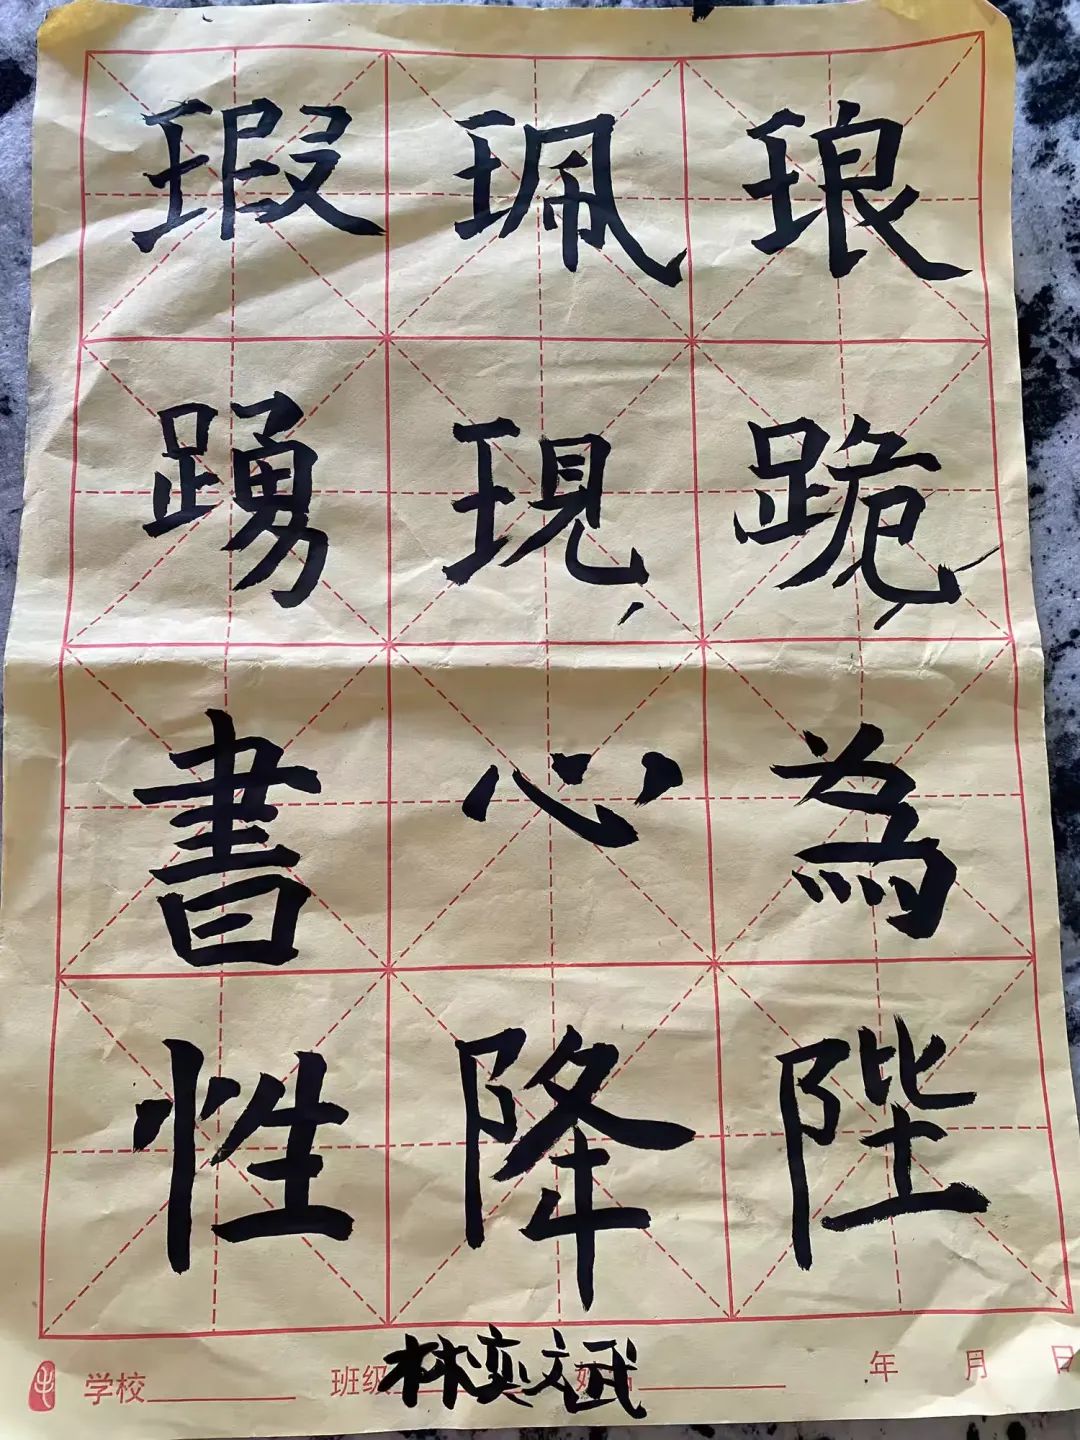 瑕珮琅
踴現跪
書心為
性降陛
学校 班级 林奕斌 年 月 日